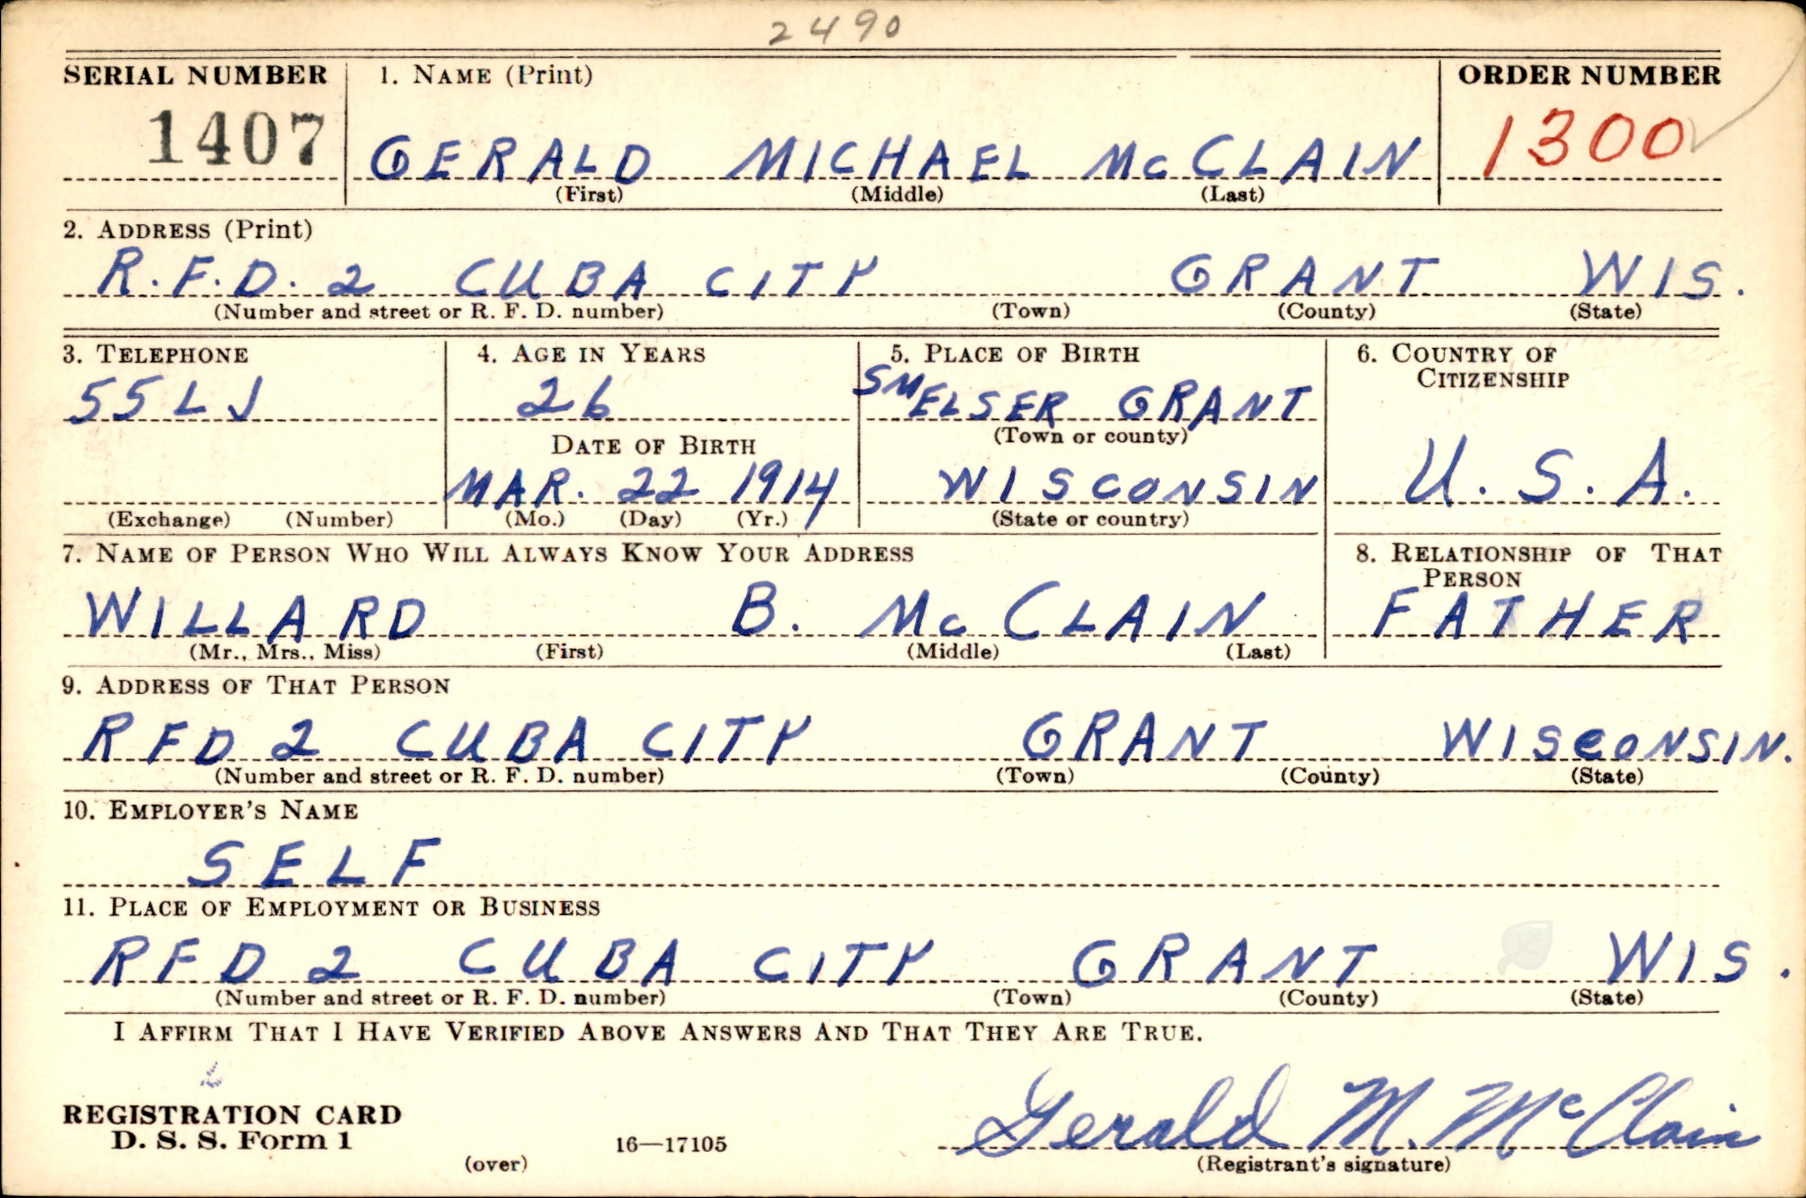 2490
SERIAL NUMBER 1. NAME (Print) ORDER NUMBER
1407 GERALD MICHAEL McCLAIN 1300
(First) (Middle) (Last)
2. ADDRESS (Print)
R.F.D. 2 CUBA CITY GRANT WIS.
(Number and street or R. F. D. number) (Town) (County) (State)
3. TELEPHONE 4. AGE IN YEARS 5. PLACE OF BIRTH 6. COUNTRY OF CITIZENSHIP
55LJ 26 SMELSER GRANT
DATE OF BIRTH (Town or county)
MAR. 22 1914 WISCONSIN U.S.A.
(Exchange) (Number) (Mo.) (Day) (Yr.) (State or country)
7. NAME OF PERSON WHO WILL ALWAYS KNOW YOUR ADDRESS 8. RELATIONSHIP OF THAT PERSON
WILLARD B. McCLAIN FATHER
(Mr., Mrs., Miss) (First) (Middle) (Last)
9. ADDRESS OF THAT PERSON
RFD 2 CUBA CITY GRANT WISCONSIN.
(Number and street or R. F. D. number) (Town) (County) (State)
10. EMPLOYER'S NAME
SELF
11. PLACE OF EMPLOYMENT OR BUSINESS
RFD 2 CUBA CITY GRANT WIS.
(Number and street or R. F. D. number) (Town) (County) (State)
I AFFIRM THAT I HAVE VERIFIED ABOVE ANSWERS AND THAT THEY ARE TRUE.
REGISTRATION CARD Gerald M. McClain
D. S. S. Form 1 16—17105
(over) (Registrant's signature)